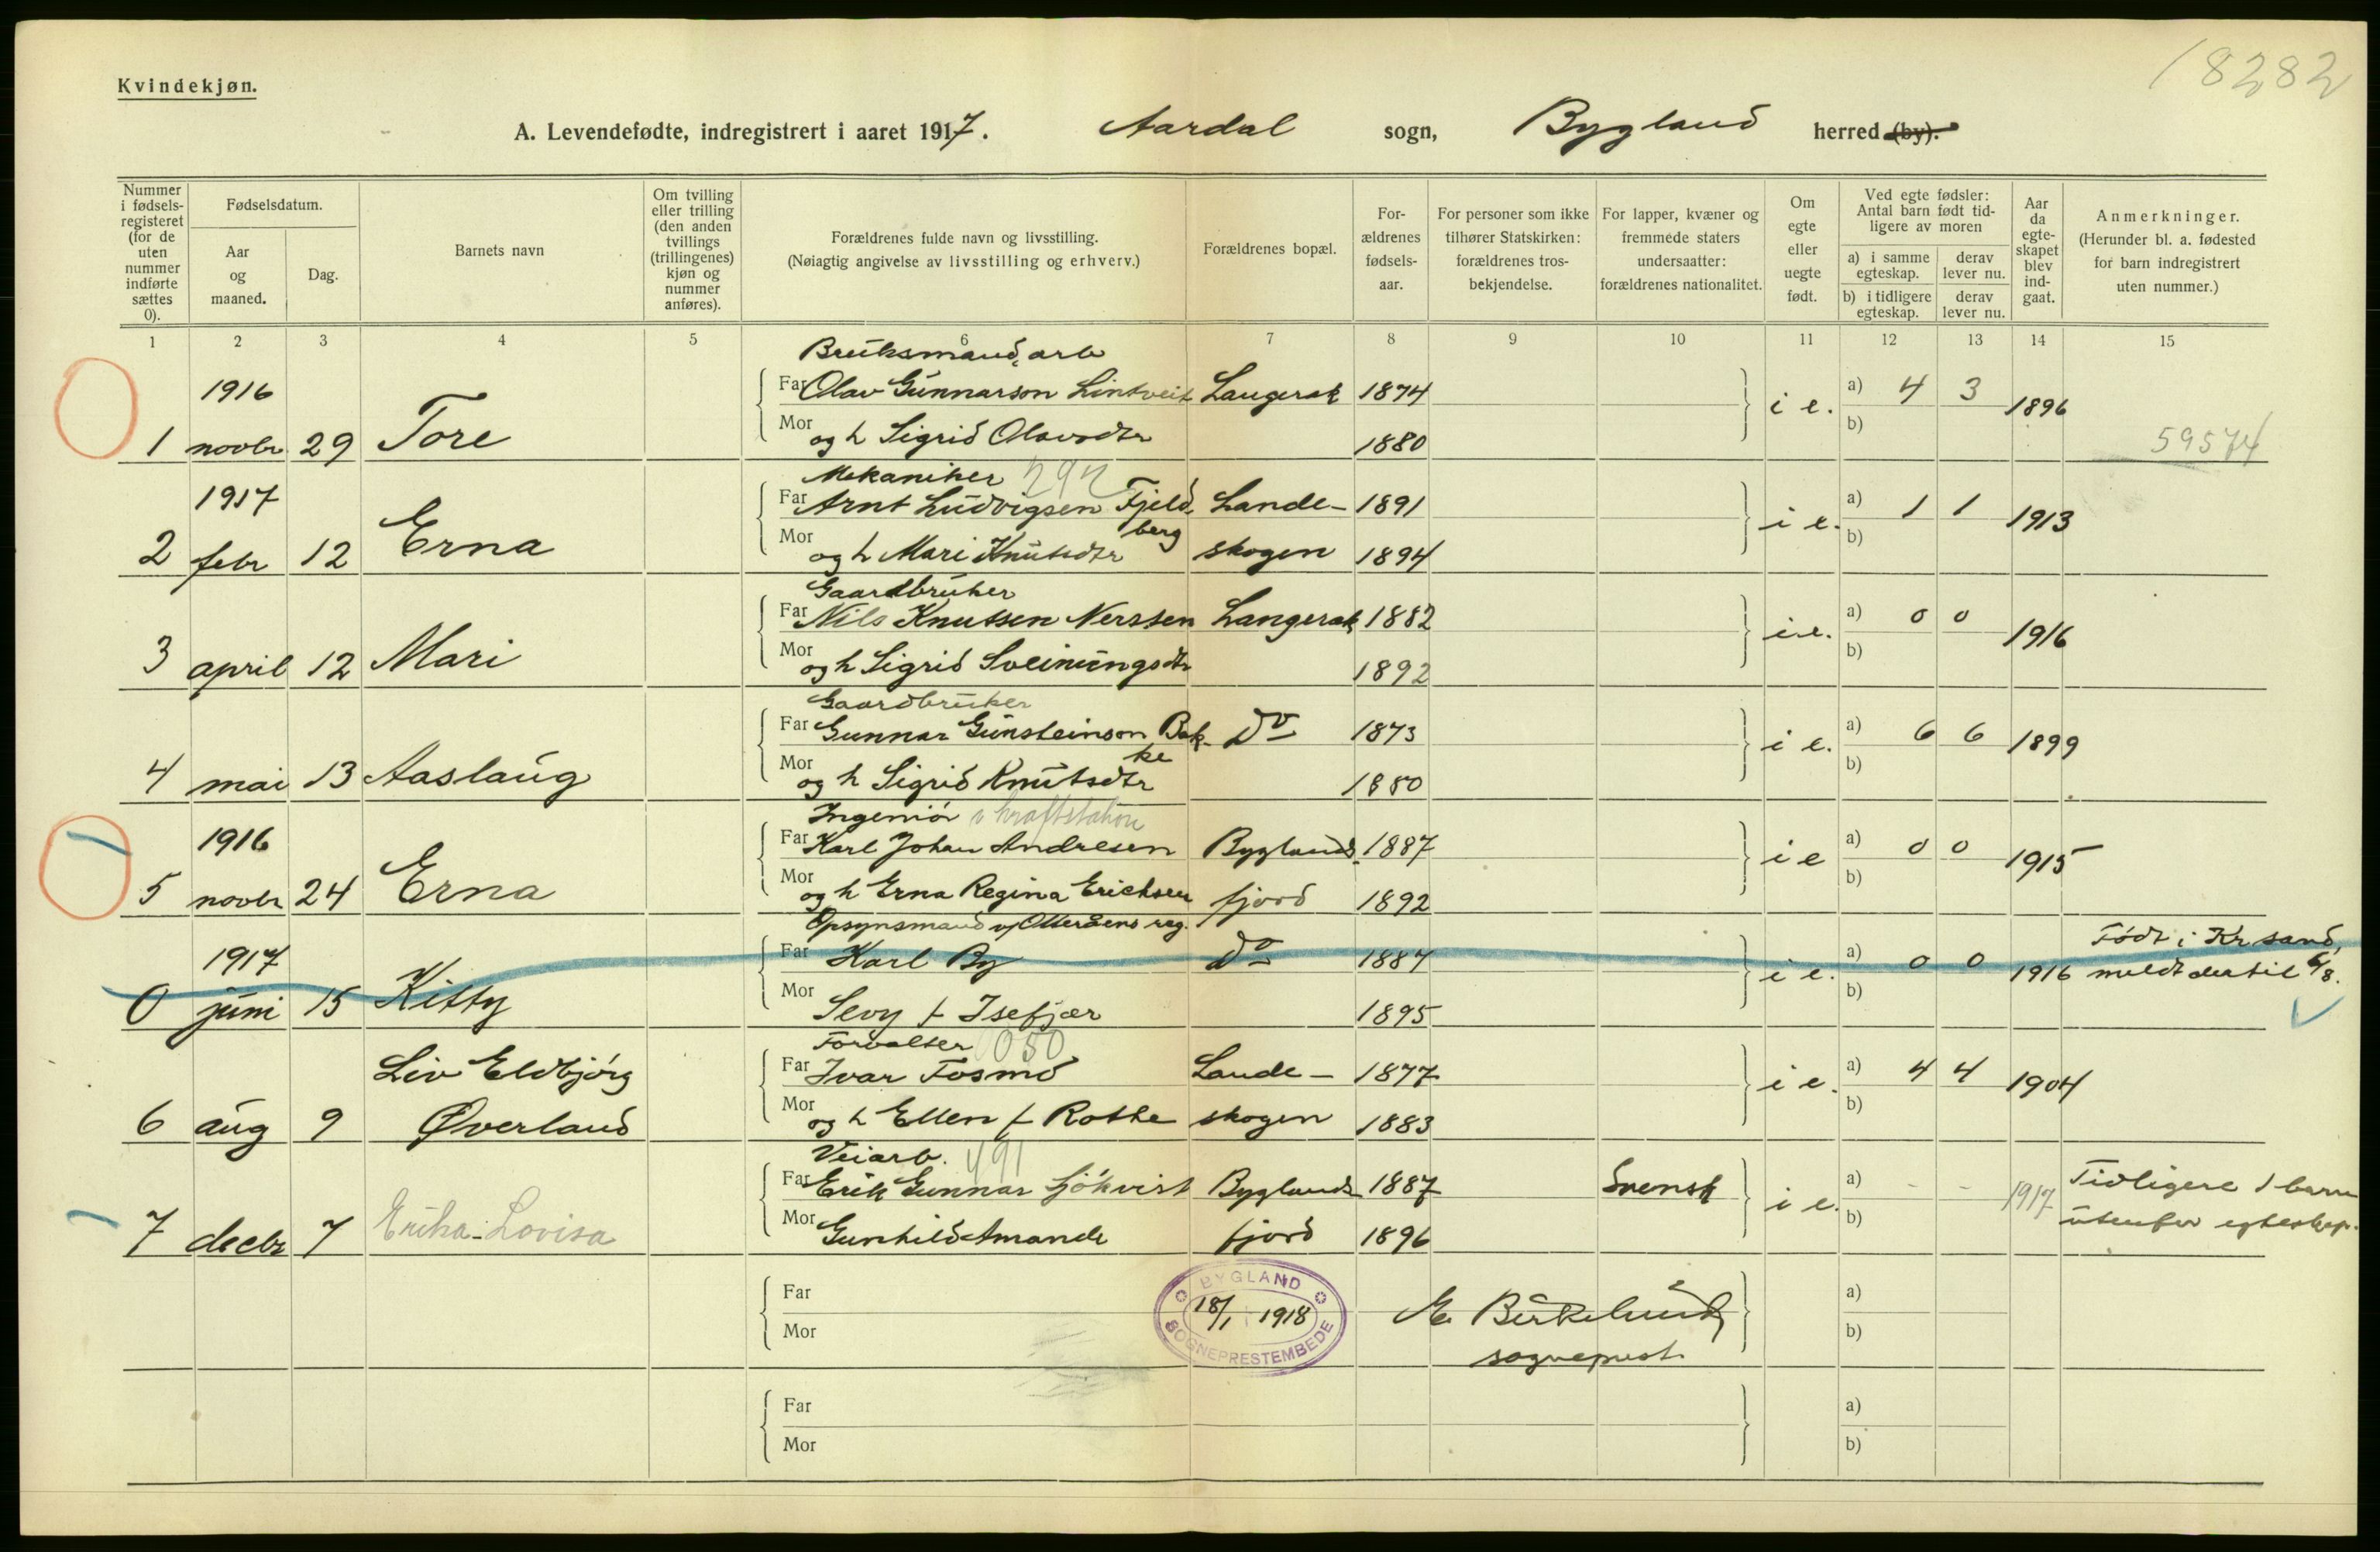 18282
Kvindekjøn.
A. Levendefødte, indregistrert i aaret 1917. Aardal sogn, Bygland herred (by).
Nummer i fødselsregisteret (for de uten nummer indførte sættes 0).
Fødselsdatum.
Aar og maaned.
Dag.
Barnets navn
Om tvilling eller trilling (den anden tvillings (trillingenes) kjøn og nummer anføres).
Forældrenes fulde navn og livsstilling.
(Nøiagtig angivelse av livsstilling og erhverv.)
Forældrenes bopæl.
Forældrenes fødselsaar.
For personer som ikke tilhører Statskirken: forældrenes trosbekjendelse.
For lapper, kvæner og fremmede staters undersaatter: forældrenes nationalitet.
Om egte eller uegte født.
Ved egte fødsler: Antal barn født tidligere av moren
a) i samme egteskap. derav lever nu.
b) i tidligere egteskap. derav lever nu.
Aar da egteskapet blev indgaat.
Anmerkninger.
(Herunder bl. a. fødested for barn indregistrert uten nummer.)
1 2 3 4 5 6 7 8 9 10 11 12 13 14 15
Bruksmand, arb
1916 Far Olav Gunnarson Lintveit Langerak 1874 i e. a) 4 3 1896
1 novbr 29 Tore Mor og h Sigrid Olavsdtr 1880 b) 59574
Mekaniker 292
1917 Far Arnt Ludvigsen Fjeld- Lande- 1891 i e. a) 1 1 1913
berg
2 febr 12 Erna Mor og h Mari Knutsdtr skogen 1894 b)
Gaardbruker
Far Nils Knutsen Nersten Langerak 1882 i e. a) 0 0 1916
3 april 12 Mari Mor og h Sigrid Sveinungsdtr 1892 b)
Gaardbruker
Far Gunnar Gunsteinson Bak- Do 1873 i e. a) 6 6 1899
ke
4 mai 13 Aaslaug Mor og h Sigrid Knutsdtr 1880 b)
Ingeniør v kraftstation
1916 Far Karl Johan Andresen Byglands- 1887 i e a) 0 0 1915
5 novbr 24 Erna Mor og h Erna Regina Erichsen fjord 1892 b)
Opsynsmand v/Otteråens reg. Født i Kr sand,
1917 Far Karl By Do 1887 i e. a) 0 0 1916 meldt dertil 6/8.
0 juni 15 Kitty Mor Sevy f Isefjær 1895 b)
Forvalter 050
Liv Eldbjørg Far Ivar Fosmo Lande- 1877 i e. a) 4 4 1904
6 aug 9 Øverland Mor og h Ellen f Rothe skogen 1883 b)
Veiarb. 491
Far Erik Gunnar Sjökvist Byglands- 1887 Svensk i e. a) - - 1917 Tidligere 1 barn
7 decbr 7 Erika-Lovisa Mor Gunhild Amanda fjord 1896 b) utenfor egteskap.
Far a)
Mor b)
BYGLAND SOGNEPRESTEMBEDE
18/1 1918
Birkelund
sogneprest
Far a)
Mor b)